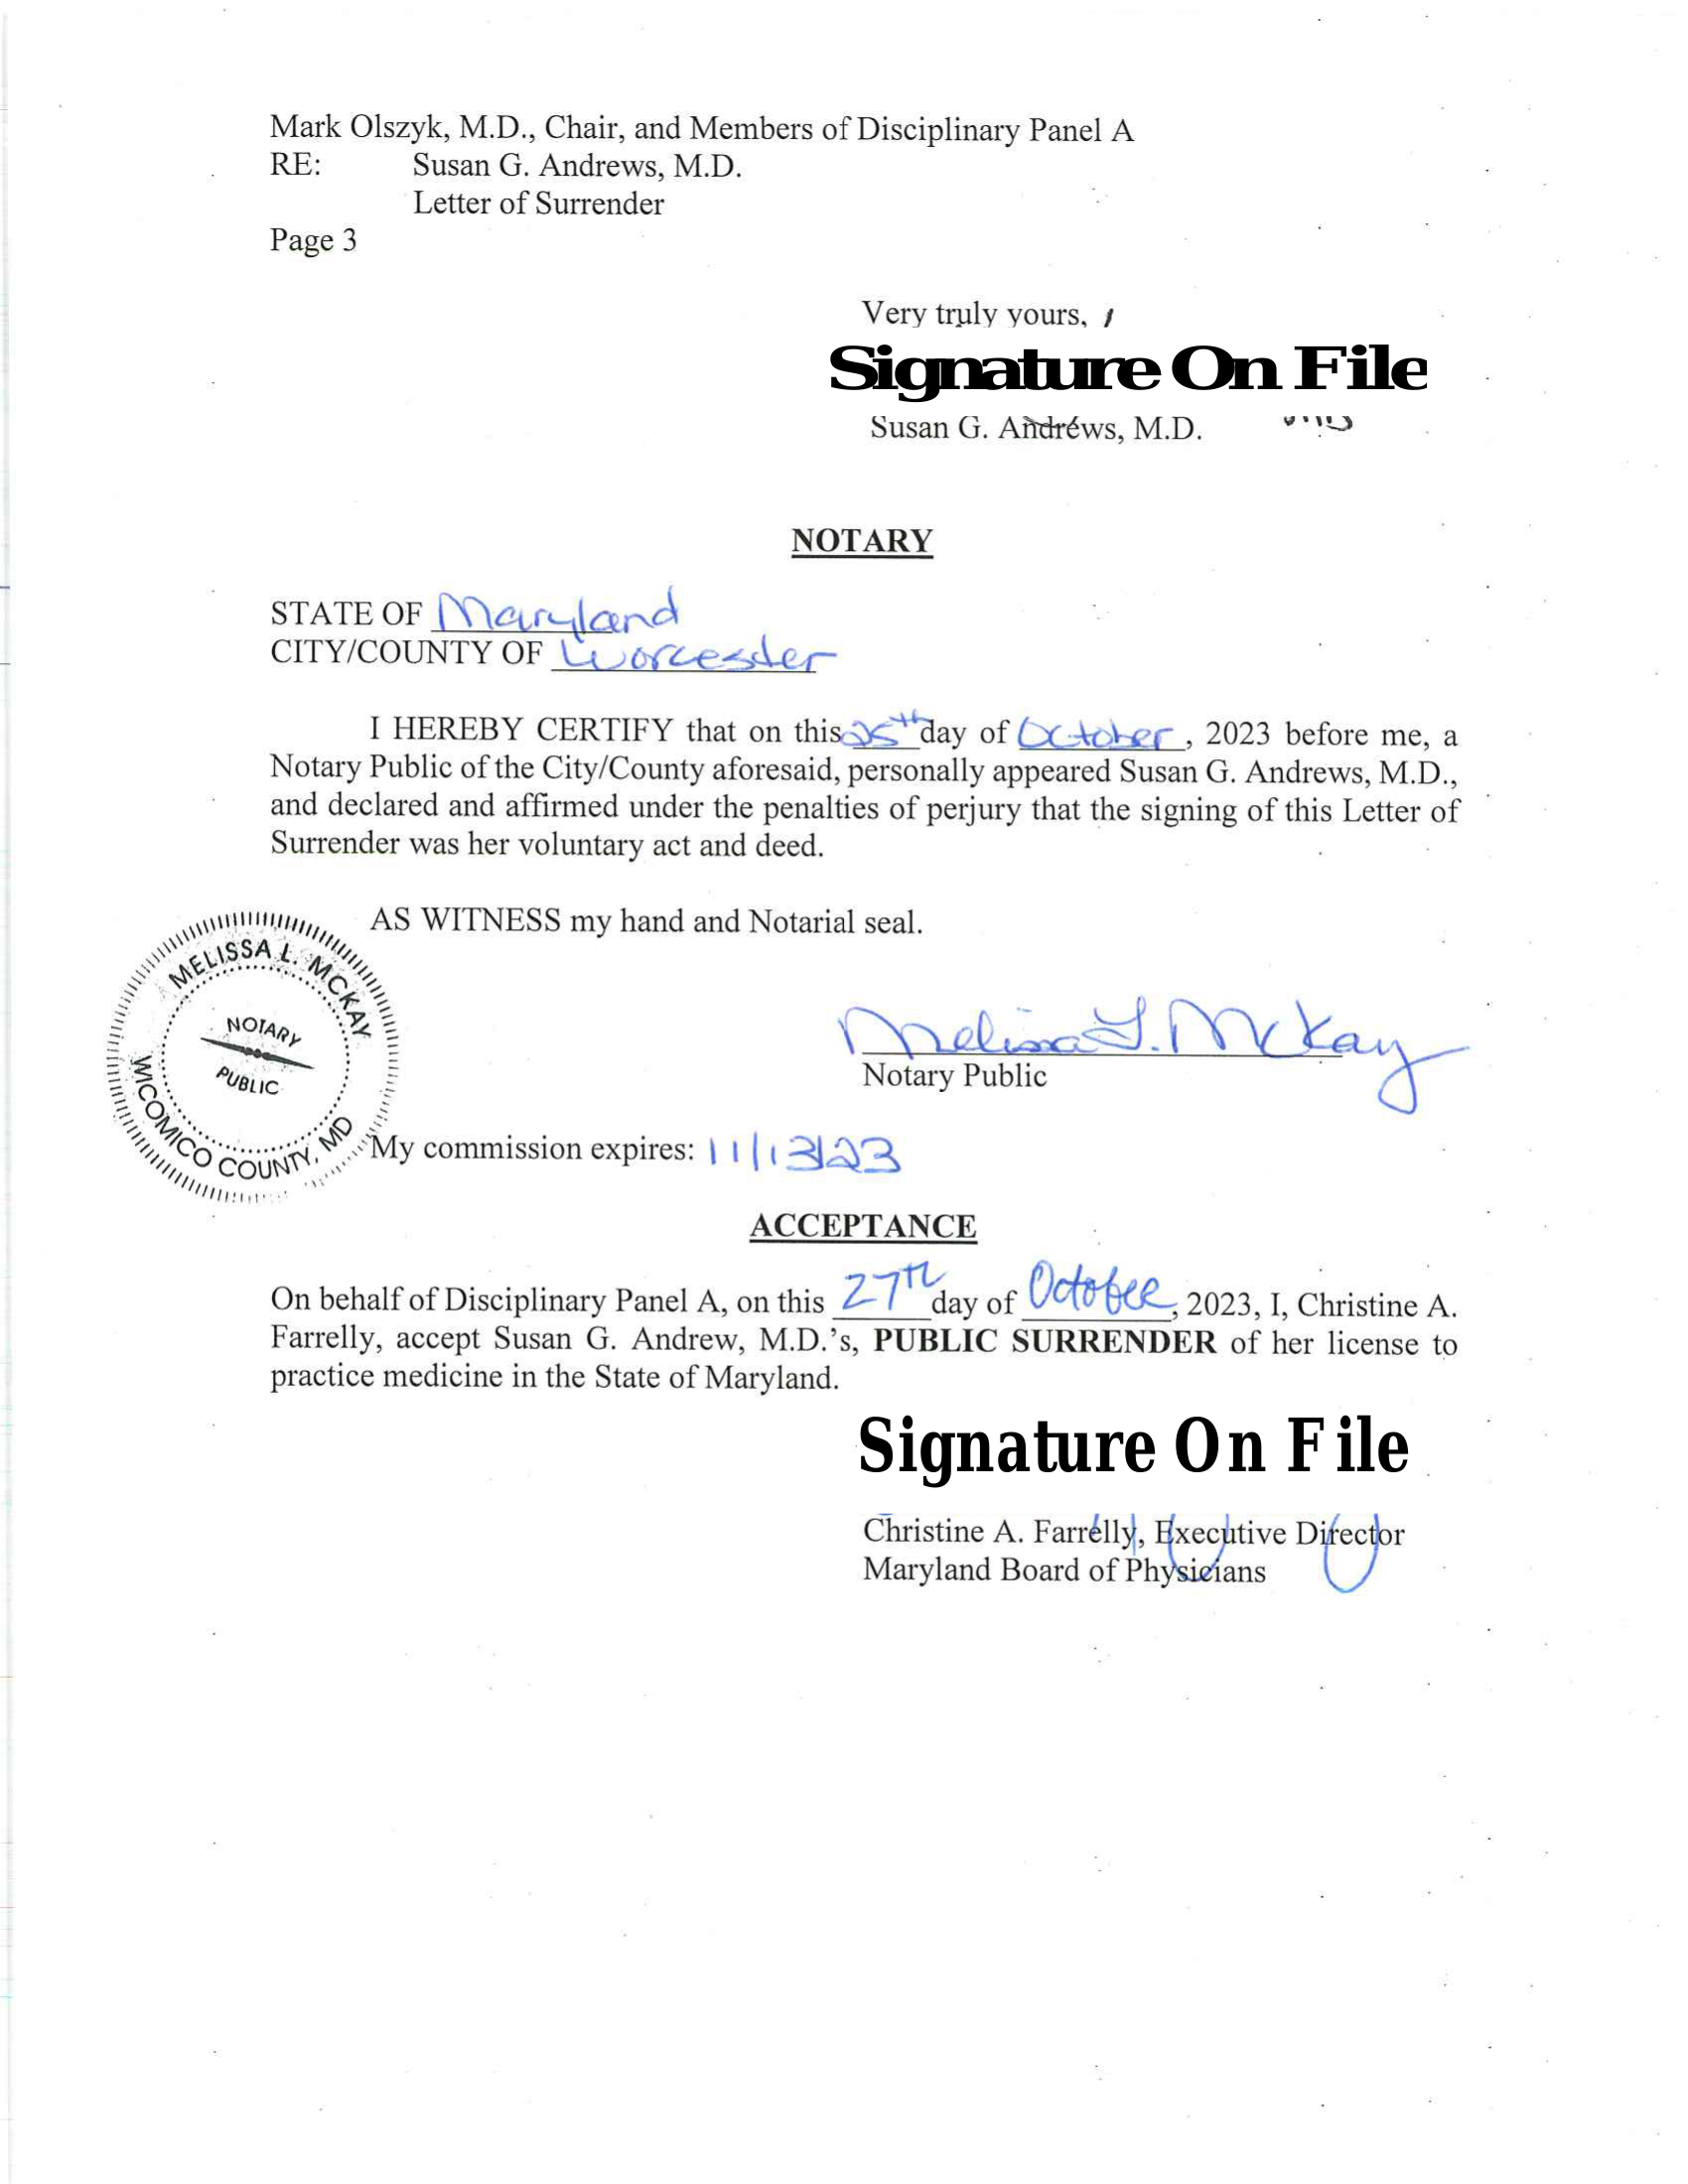 Mark Olszyk, M.D., Chair, and Members of Disciplinary Panel A
RE: Susan G. Andrews, M.D.
Letter of Surrender
Page 3
Very truly yours,
Signature On File
Susan G. Andrews, M.D.
NOTARY
STATE OF Maryland
CITY/COUNTY OF Worcester
I HEREBY CERTIFY that on this 25th day of October, 2023 before me, a
Notary Public of the City/County aforesaid, personally appeared Susan G. Andrews, M.D.,
and declared and affirmed under the penalties of perjury that the signing of this Letter of
Surrender was her voluntary act and deed.
AS WITNESS my hand and Notarial seal.
MELISSA L. MCKAY
NOTARY
PUBLIC
WICOMICO COUNTY, MD
Melissa L. McKay
Notary Public
My commission expires: 11/13/23
ACCEPTANCE
On behalf of Disciplinary Panel A, on this 27th day of October, 2023, I, Christine A.
Farrelly, accept Susan G. Andrew, M.D.'s, PUBLIC SURRENDER of her license to
practice medicine in the State of Maryland.
Signature On File
Christine A. Farrelly, Executive Director
Maryland Board of Physicians